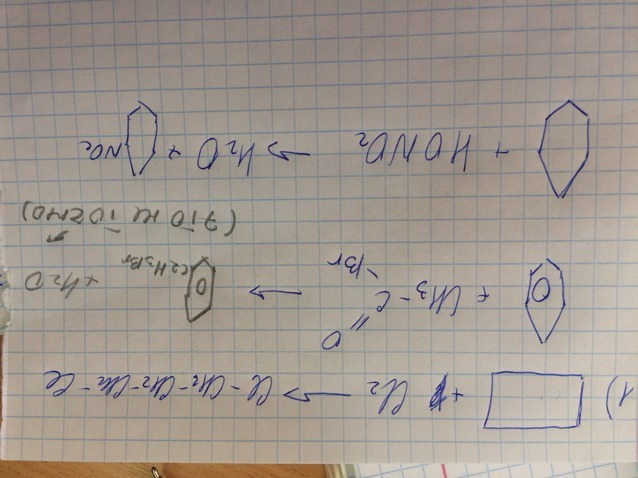 1) + Cl2 → Cl-CH2-CH2-CH2-CH2-Cl
+ CH3-C
O
-Br → C2H3Br + H2O
(это не точно)
+ HONO2 → H2O + NO2